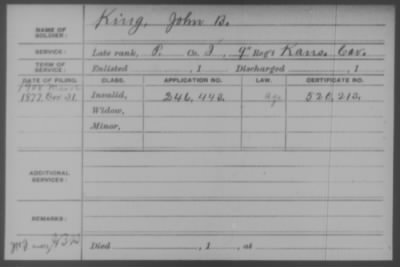 King, John B.
NAME OF SOLDIER:
SERVICE: Late rank, P. Co. I, 9" Reg't Kans. Cav.
TERM OF SERVICE: Enlisted , 1 Discharged , 1
DATE OF FILING. CLASS. APPLICATION NO. LAW. CERTIFICATE NO.
1877, 21. Invalid, 246,443. 520,213.
Widow,
Minor,
ADDITIONAL SERVICES:
REMARKS:
Died , 1 , at